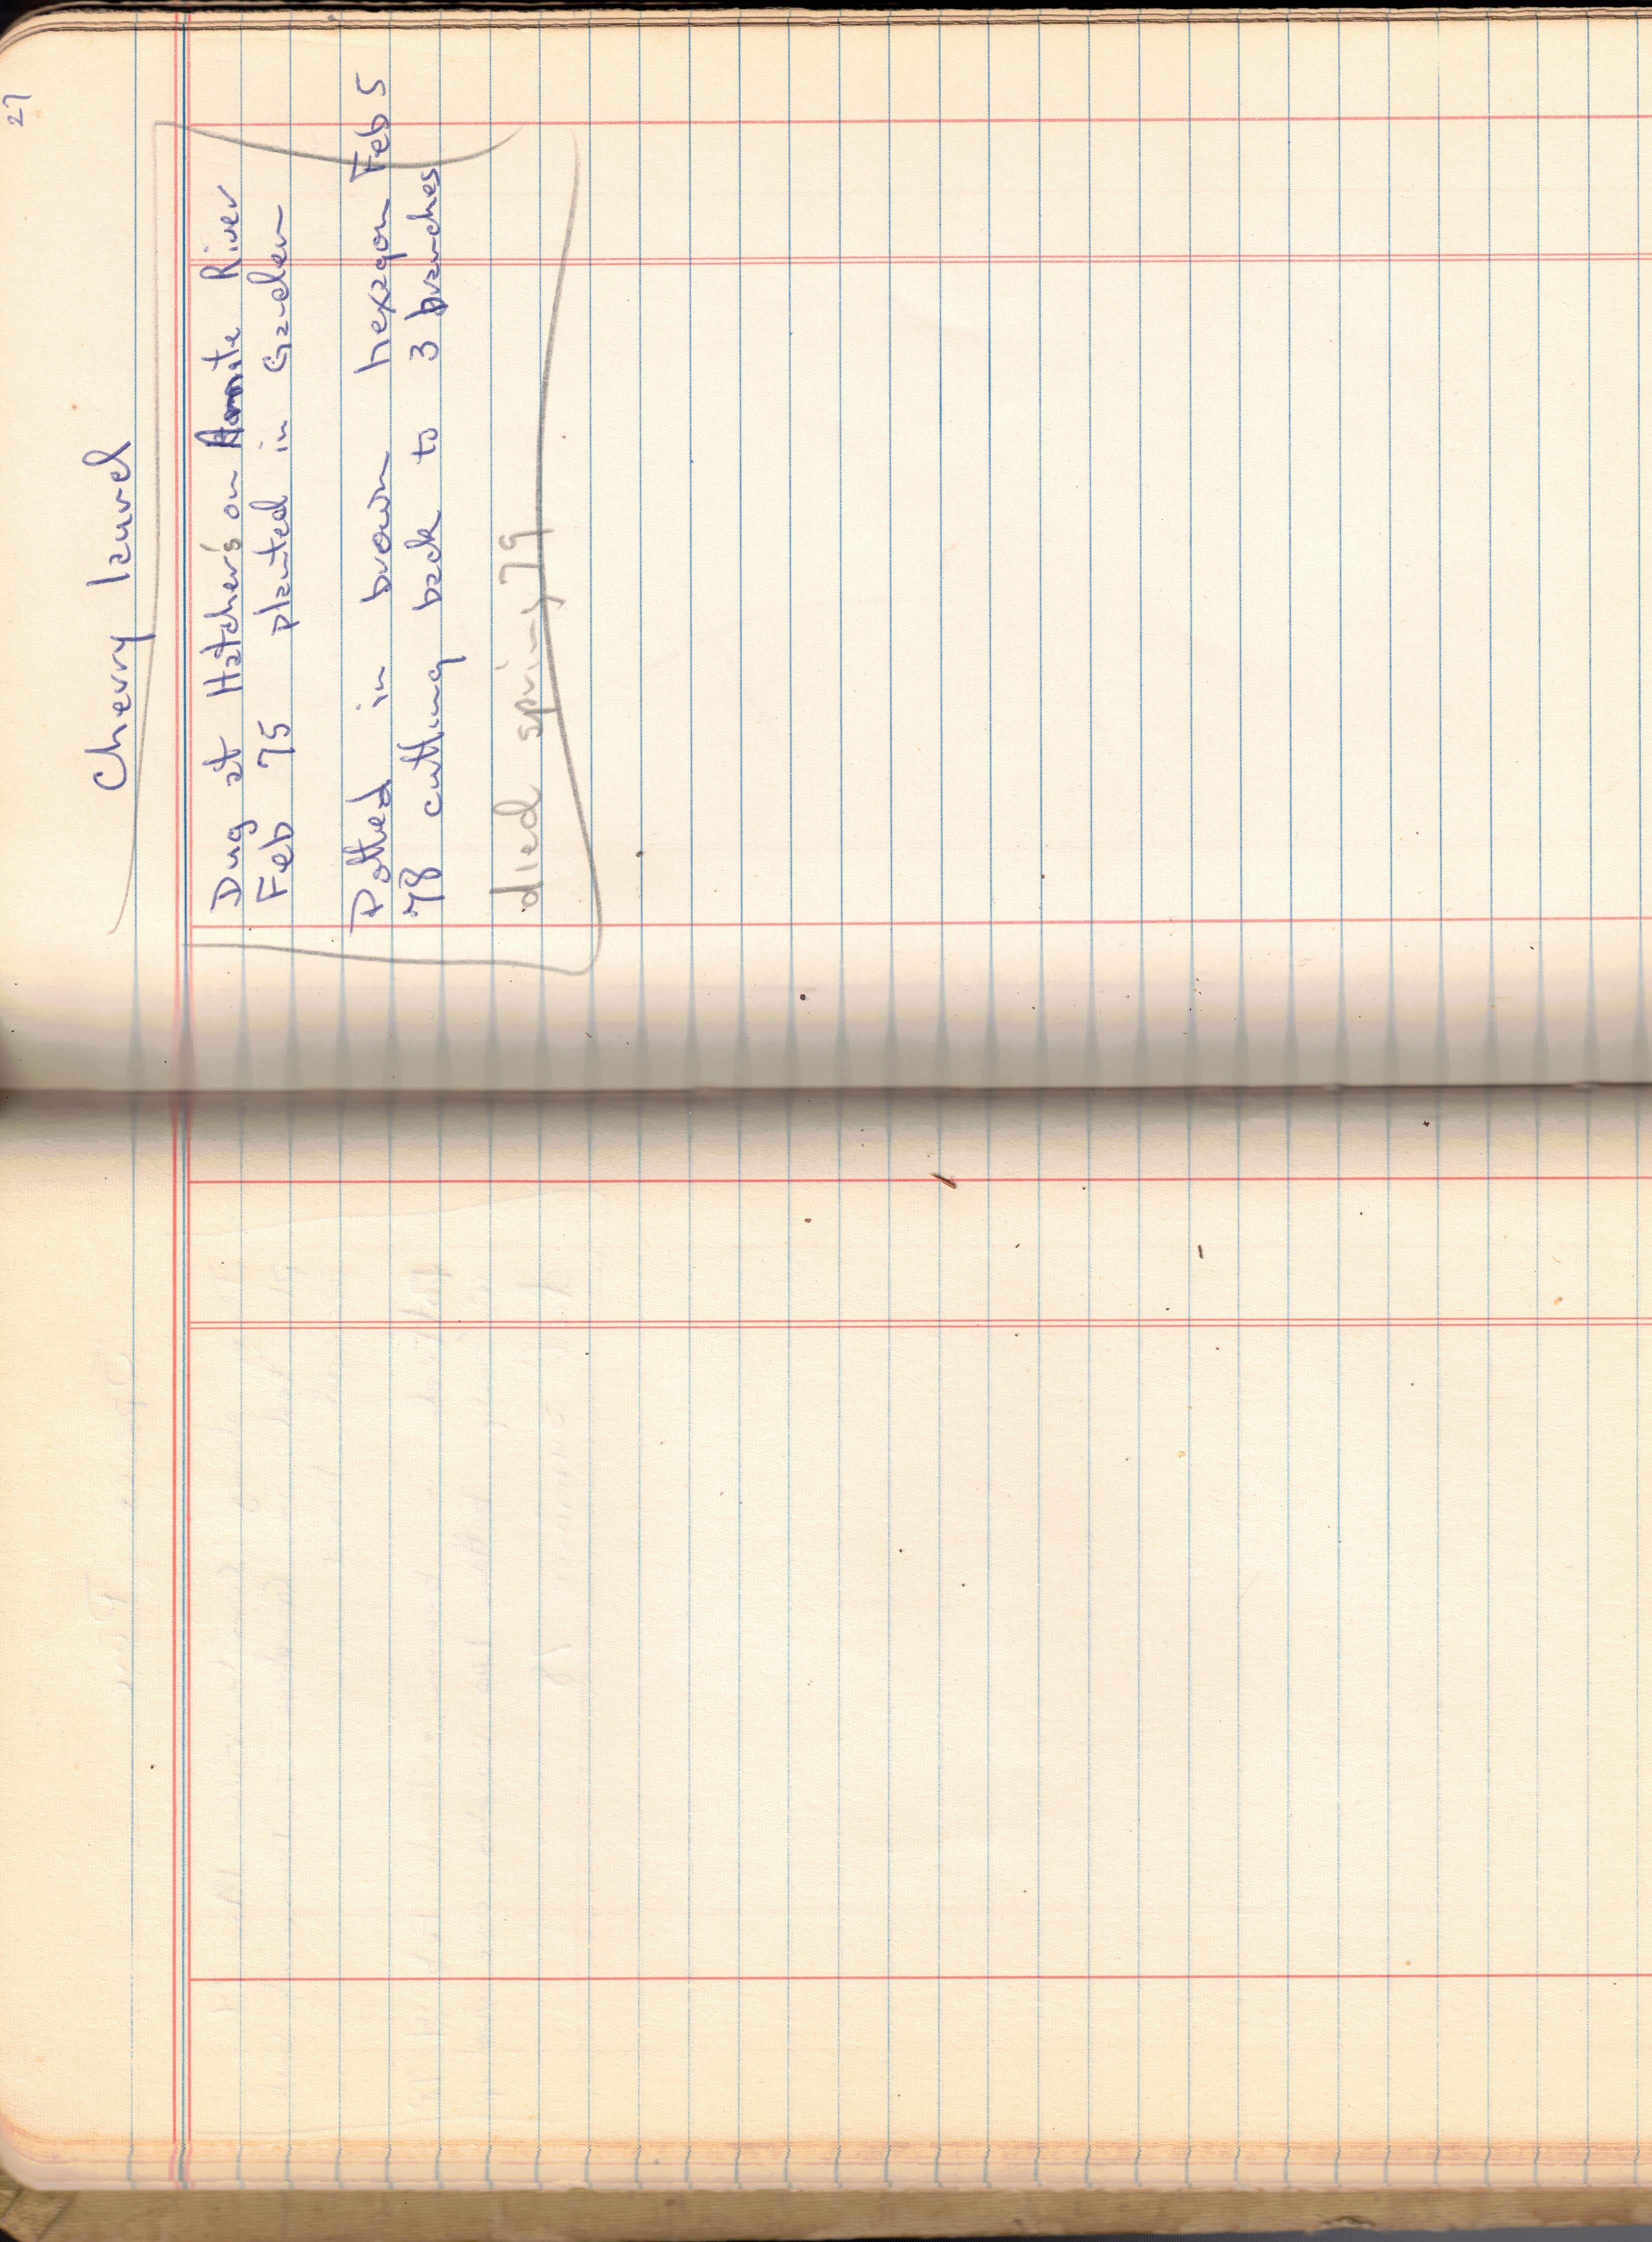 27
Cherry laurel
Dug at Hatcher's on Amite River
Feb 75 planted in Garden
Potted in brown hexagon Feb 5
78 cutting back to 3 branches
died spring 79